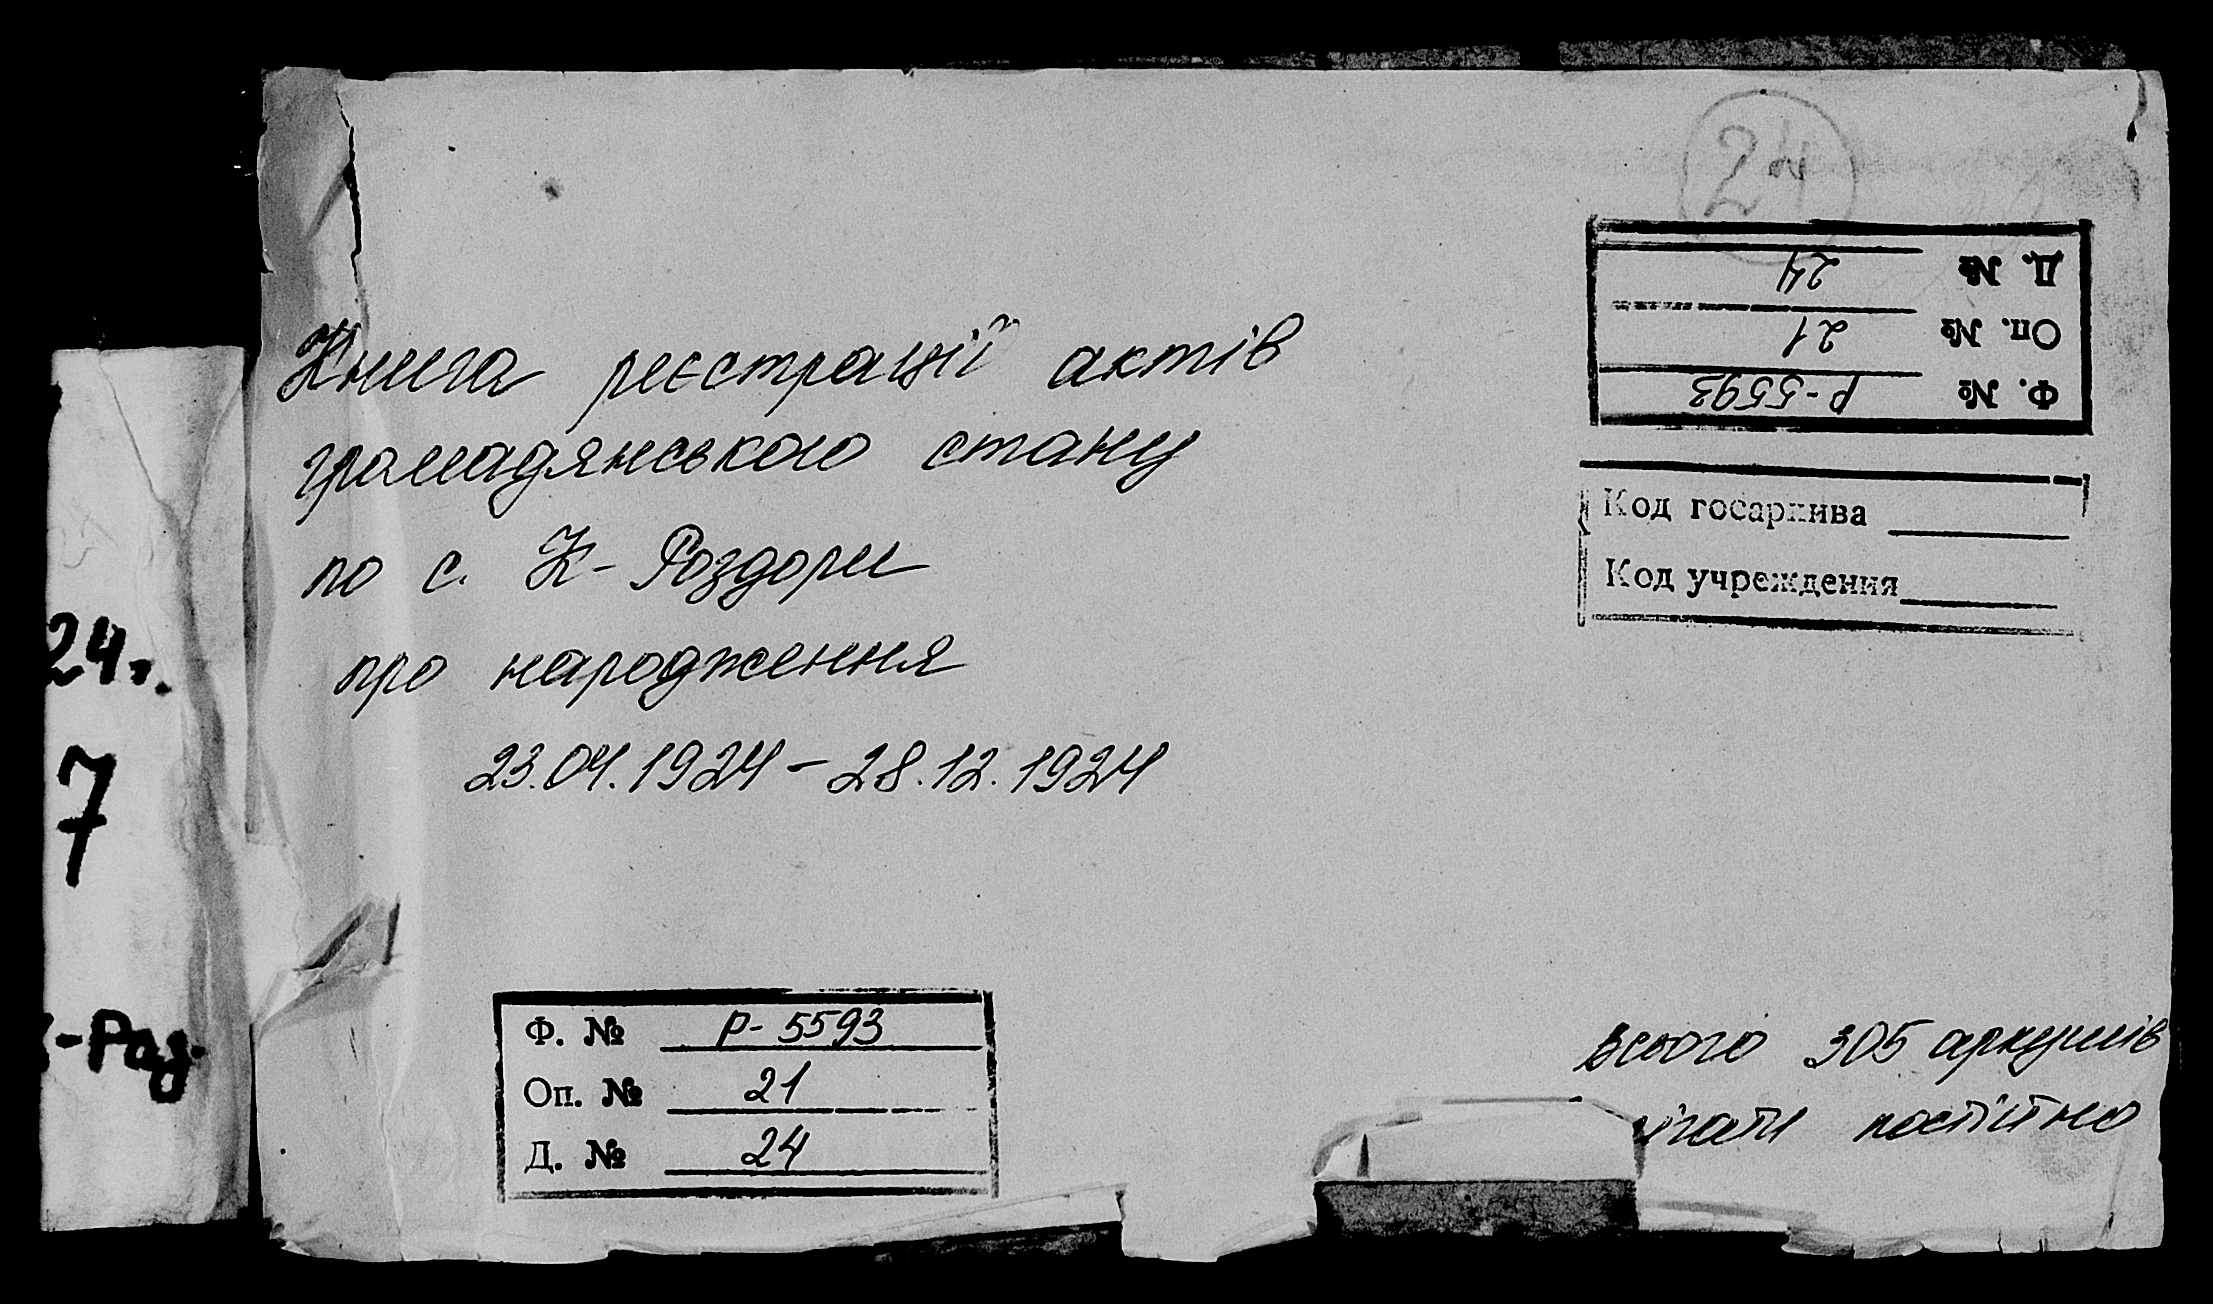 24
Д. № 24
Оп. № 21
Ф. № Р-5593
Код госархива
Код учреждения
Книга реєстрації актів
громадянського стану
по с. К-Роздори
про народження
23.04.1924 – 28.12.1924
24г.
7
-Раз.
Ф. № Р-5593
Оп. № 21
Д. № 24
Всього 305 аркушів
ігати постійно